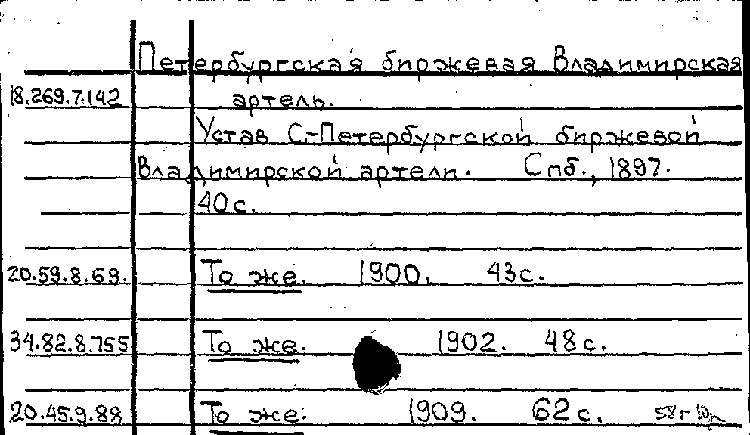 Петербургская биржевая Владимирская
18.269.7.142 артель.
Устав С.-Петербургской биржевой
Владимирской артели. Спб., 1897.
40 с.
20.59.8.69. То же. 1900. 43 с.
34.82.8.755 То же. 1902. 48 с.
20.45.9.88 То же. 1909. 62 с.